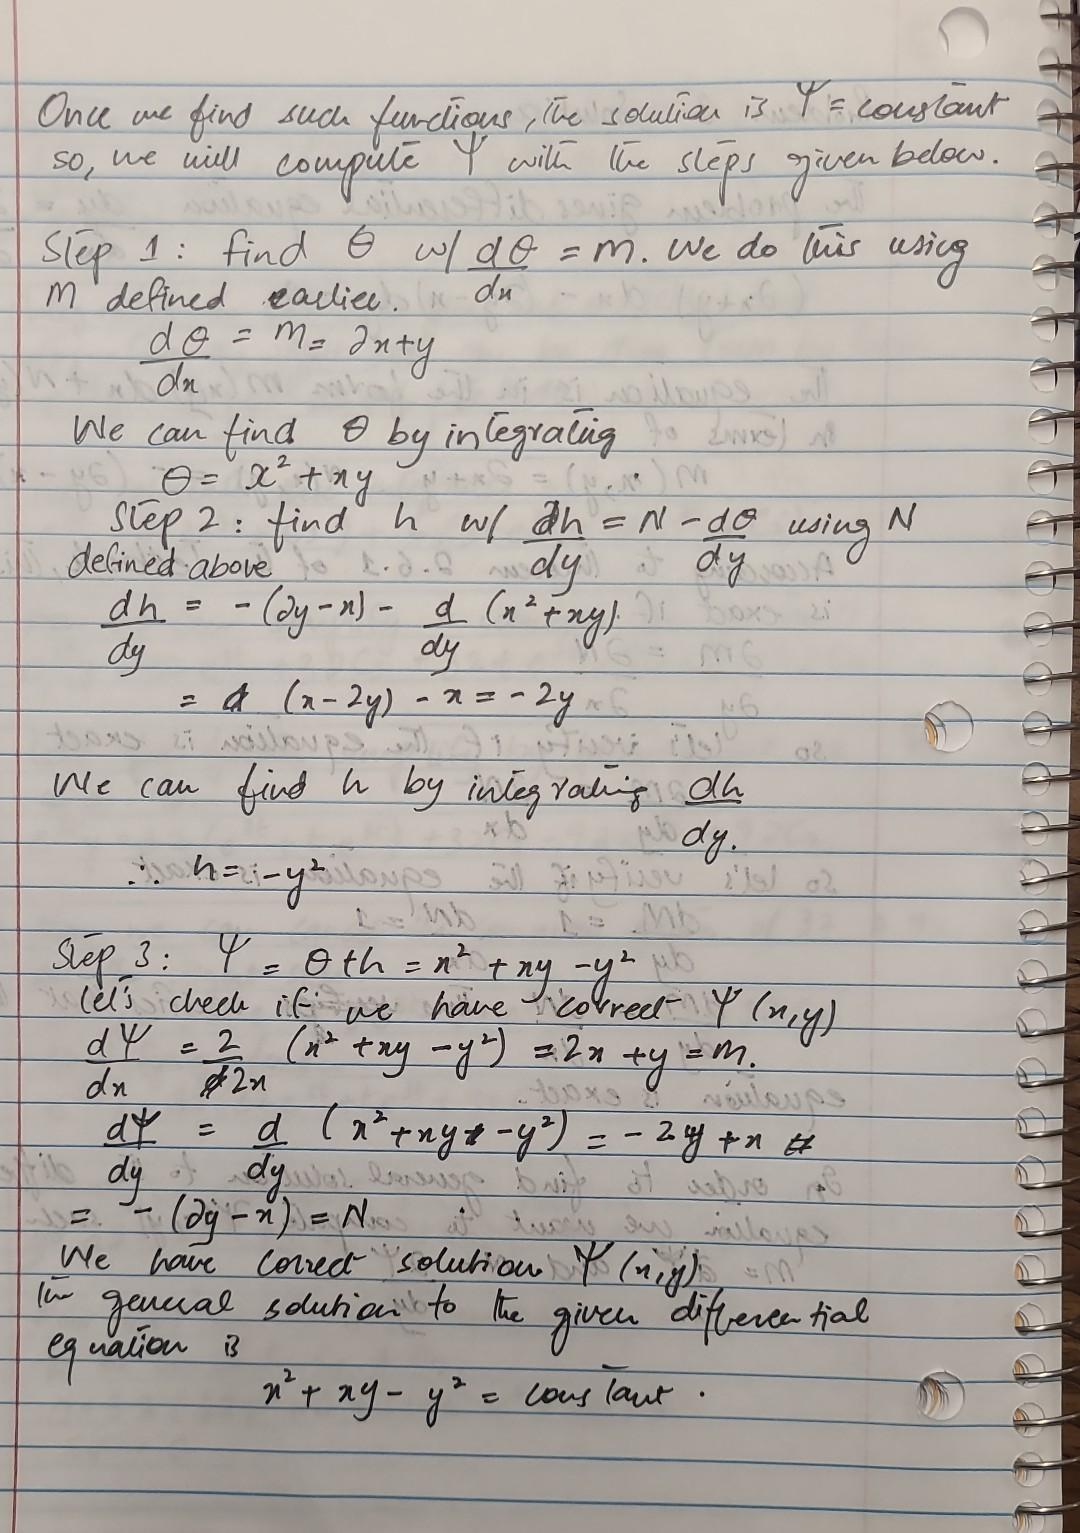 Once we find such functions, the solution is Ψ = constant
so, we will compute Ψ with the steps given below.
Step 1: find θ w/ dθ/dx = M. We do this using
M defined earlier.
dθ/dx = M = 2x+y
We can find θ by integrating
θ = x² + xy
Step 2: find h w/ dh/dy = N - dθ/dy using N
defined above
dh/dy = -(2y-x) - d/dy (x² + xy)
= (x-2y) - x = -2y
We can find h by integrating dh/dy.
∴ h = -y²
Step 3: Ψ = θ+h = x² + xy - y²
let's check if we have correct Ψ (x,y)
dΨ/dx = 2/2x (x² + xy - y²) = 2x + y = M.
dΨ/dy = d/dy (x² + xy - y²) = -2y + x
= -(2y-x) = N
We have correct solution Ψ (x,y)
The general solution to the given differential
equation is
x² + xy - y² = constant.